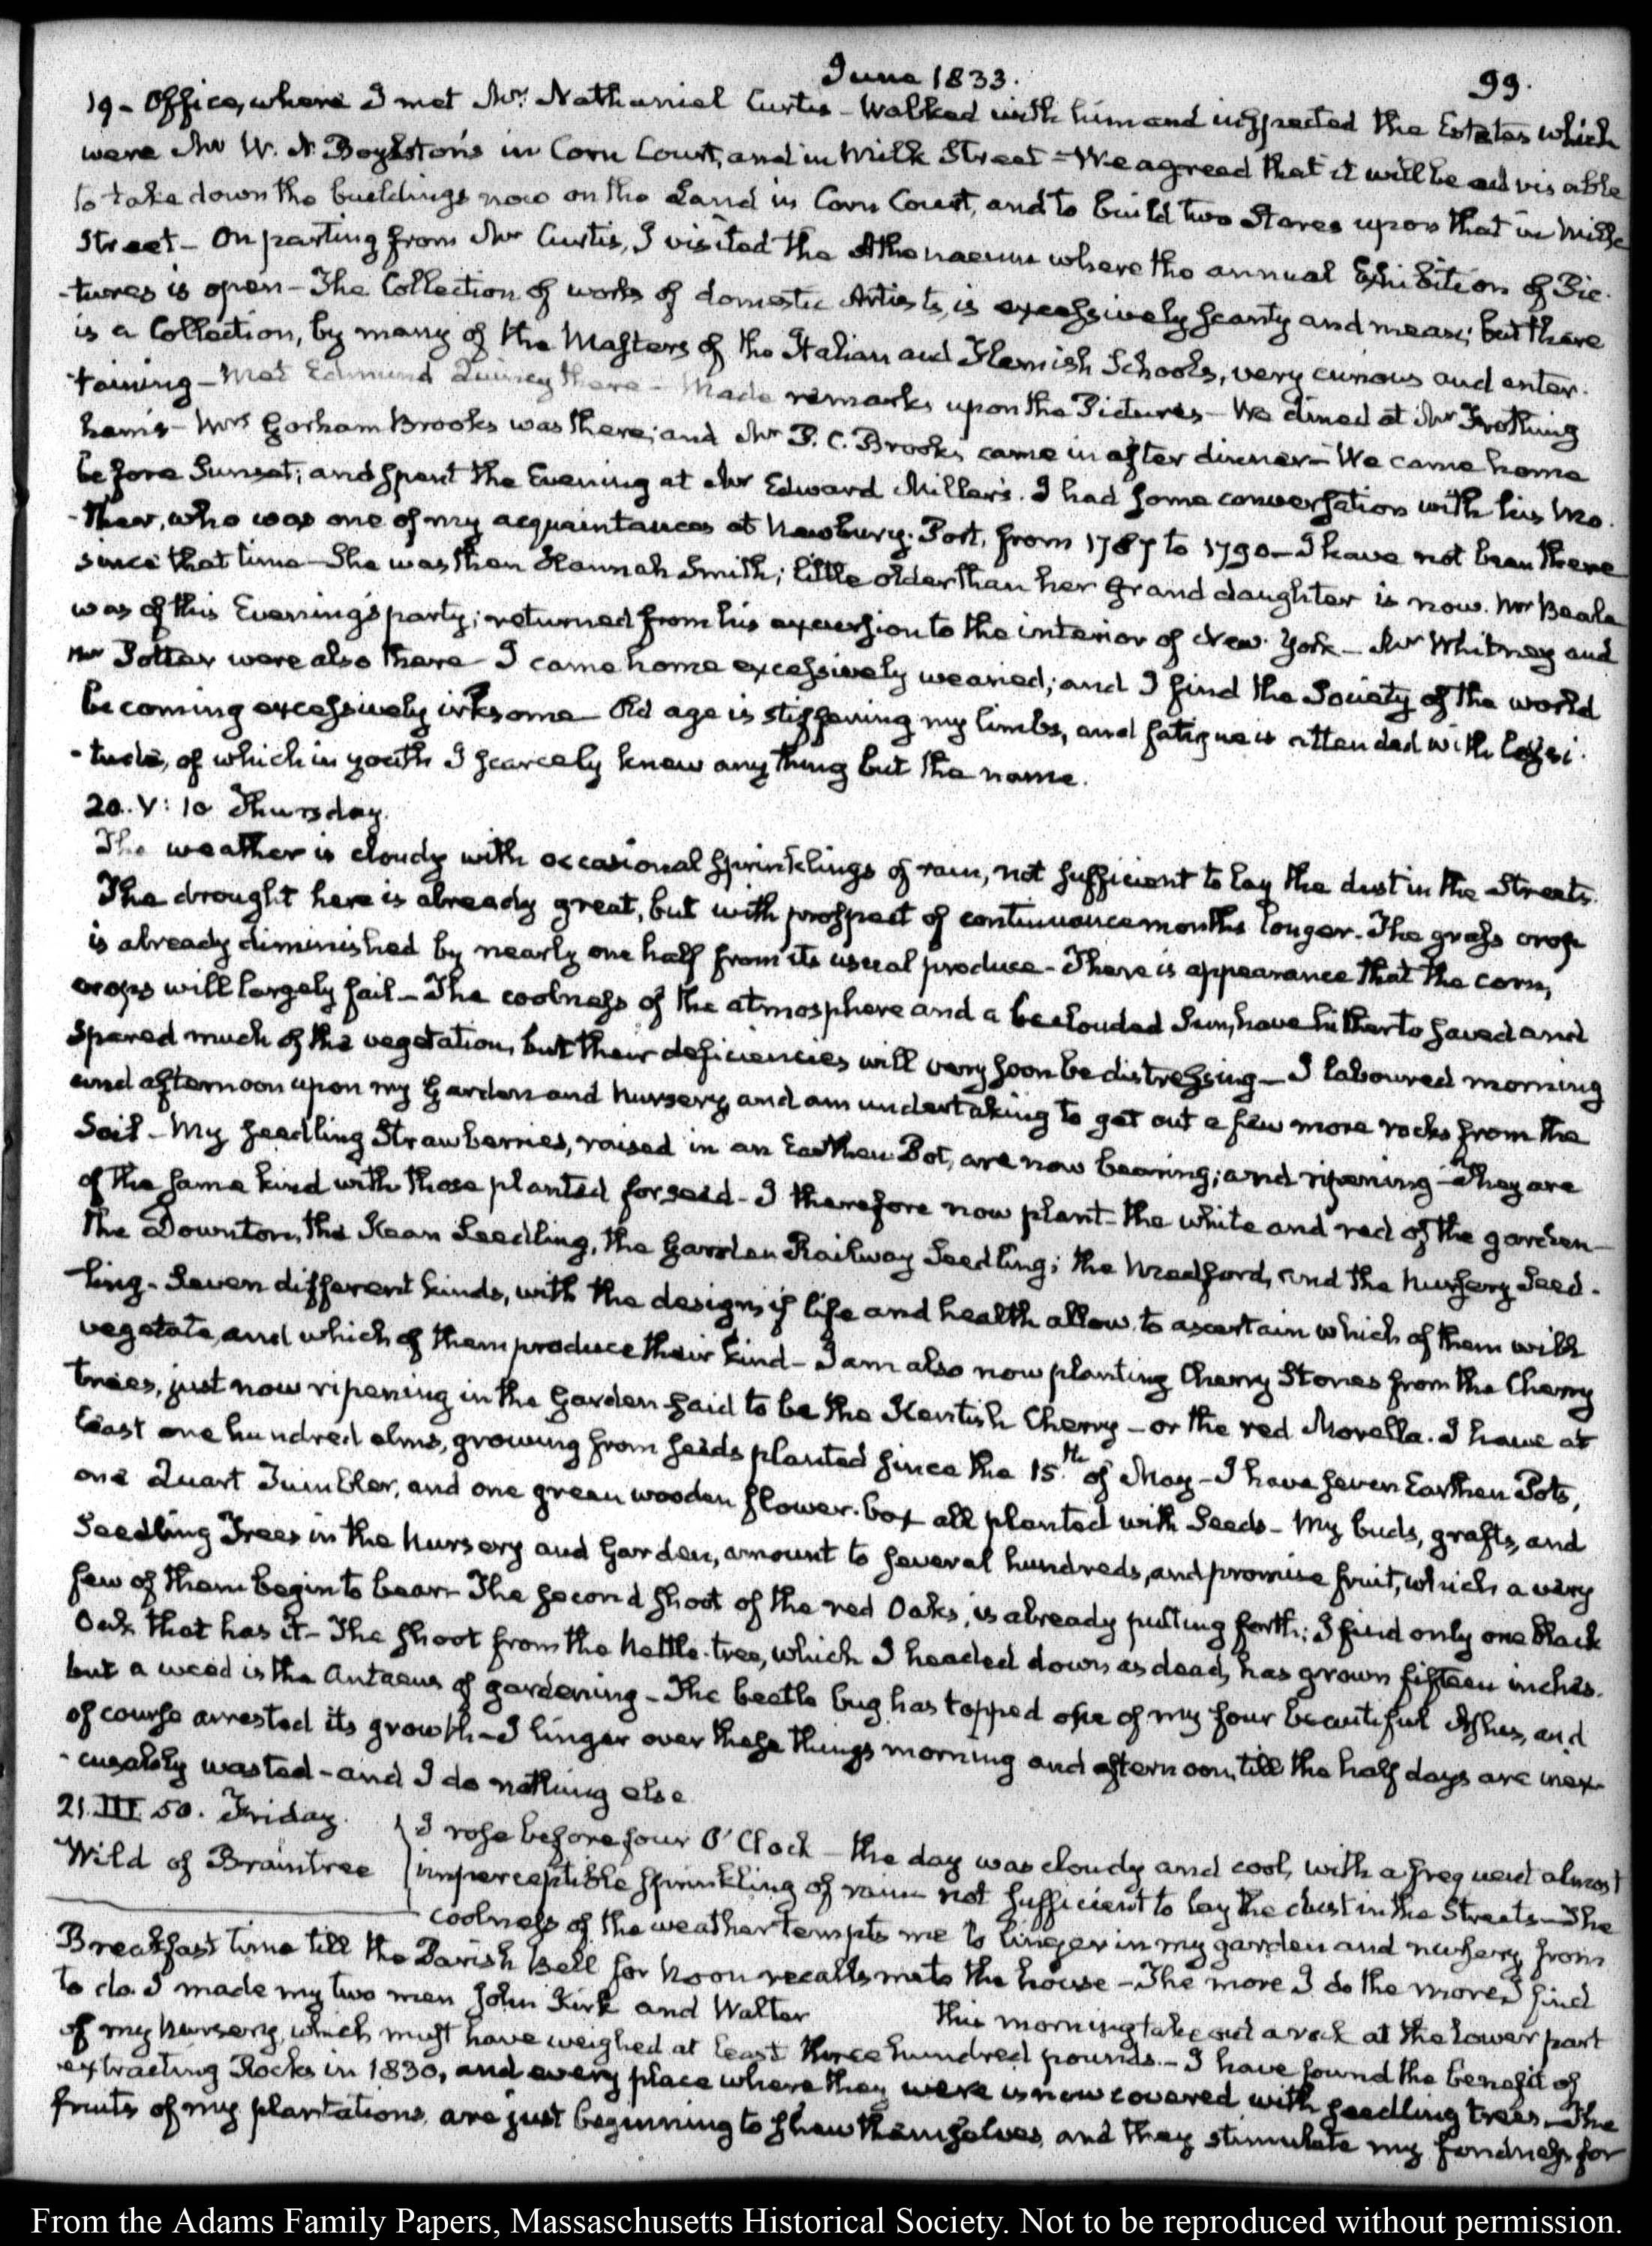 June 1833. 99.
19 - Office, where I met Mr. Nathaniel Curtis - Walked with him and inspected the Estates which
were Mr W. N. Boylston's in Corn Court, and in Milk Street - We agreed that it will be advisable
to take down the buildings now on the Land in Corn Court, and to build two Stores upon that in Milk
Street - On parting from Mr Curtis, I visited the Athenaeum where the annual Exhibition of Pic-
-tures is open - The Collection of works of domestic Artists, is excessively scanty and mean; but there
is a Collection, by many of the Masters of the Italian and Flemish Schools, very curious and enter-
-taining - Met Edmund Quincy there - Made remarks upon the Pictures - We dined at Mr Frothing
ham's - Mrs Gorham Brooks was there; and Mr P. C. Brooks came in after dinner - We came home
before Sunset; and spent the Evening at Mr Edward Miller's. I had some conversation with his Mo-
-ther, who was one of my acquaintances at Newbury-Port, from 1787 to 1790 - I have not been there
since that time - She was then Hannah Smith; little older than her grand daughter is now. Mr Beale
was of this Evening's party; returned from his excursion to the interior of New-York - Mr Whitney and
Mr Potter were also there - I came home excessively wearied; and I find the Society of the world
becoming excessively irksome - Old age is stiffening my limbs, and fatigue is attended with lassi-
-tude, of which in youth I scarcely knew any thing but the name.
20. V: 10 Thursday.
The weather is cloudy with occasional sprinklings of rain, not sufficient to lay the dust in the Streets.
The drought here is already great, but with prospect of continuance months longer. The grass crop
is already diminished by nearly one half from its usual produce - There is appearance that the corn,
crops will largely fail - The coolness of the atmosphere and a beclouded Sun, have hitherto saved and
spared much of the vegetation, but their deficiencies will very soon be distressing - I laboured morning
and afternoon upon my Garden and Nursery, and am undertaking to get out a few more rocks from the
Soil - My seedling Strawberries, raised in an Earthen Pot, are now bearing; and ripening - They are
of the same kind with those planted for seed - I therefore now plant - the white and red of the garden -
the Downton, the Kean Seedling, the Garden Railway Seedling; the Medford, and the Nursery Seed-
-ling - Seven different kinds, with the design, if life and health allow to ascertain which of them will
vegetate, and which of them produce their kind - I am also now planting Cherry Stones from the Cherry
trees, just now ripening in the Garden said to be the Kentish Cherry - or the red Morella. I have at
least one hundred elms, growing from seeds planted since the 15th of May - I have seven Earthen Pots,
one Quart Tumbler, and one green wooden flower-box all planted with Seeds - My buds, grafts, and
Seedling Trees in the Nursery and Garden, amount to several hundreds, and promise fruit, which a very
few of them begin to bear - The second shoot of the red Oaks, is already putting forth; I find only one black
Oak that has it - The shoot from the Nettle-tree, which I headed down as dead, has grown fifteen inches.
but a weed is the Antaeus of gardening - The beetle bug has topped one of my four beautiful Ashes, and
of course arrested its growth - I linger over these things morning and afternoon, till the half days are inex-
-cusably wasted - and I do nothing else
21. III. 50. Friday.
Wild of Braintree
I rose before four O'Clock - the day was cloudy and cool, with a frequent almost
imperceptible sprinkling of rain not sufficient to lay the dust in the Streets - The
coolness of the weather tempts me to linger in my garden and nursery from
Breakfast time till the Parish Bell for Noon recalls me to the house - The more I do the more I find
to do. I made my two men John Kirk and Walter this morning take out a rock at the lower part
of my Nursery, which must have weighed at least three hundred pounds. - I have found the benefit of
extracting Rocks in 1830, and every place where they were is now covered with seedling trees. - The
fruits of my plantations are just beginning to shew themselves, and they stimulate my fondness for
From the Adams Family Papers, Massachusetts Historical Society. Not to be reproduced without permission.